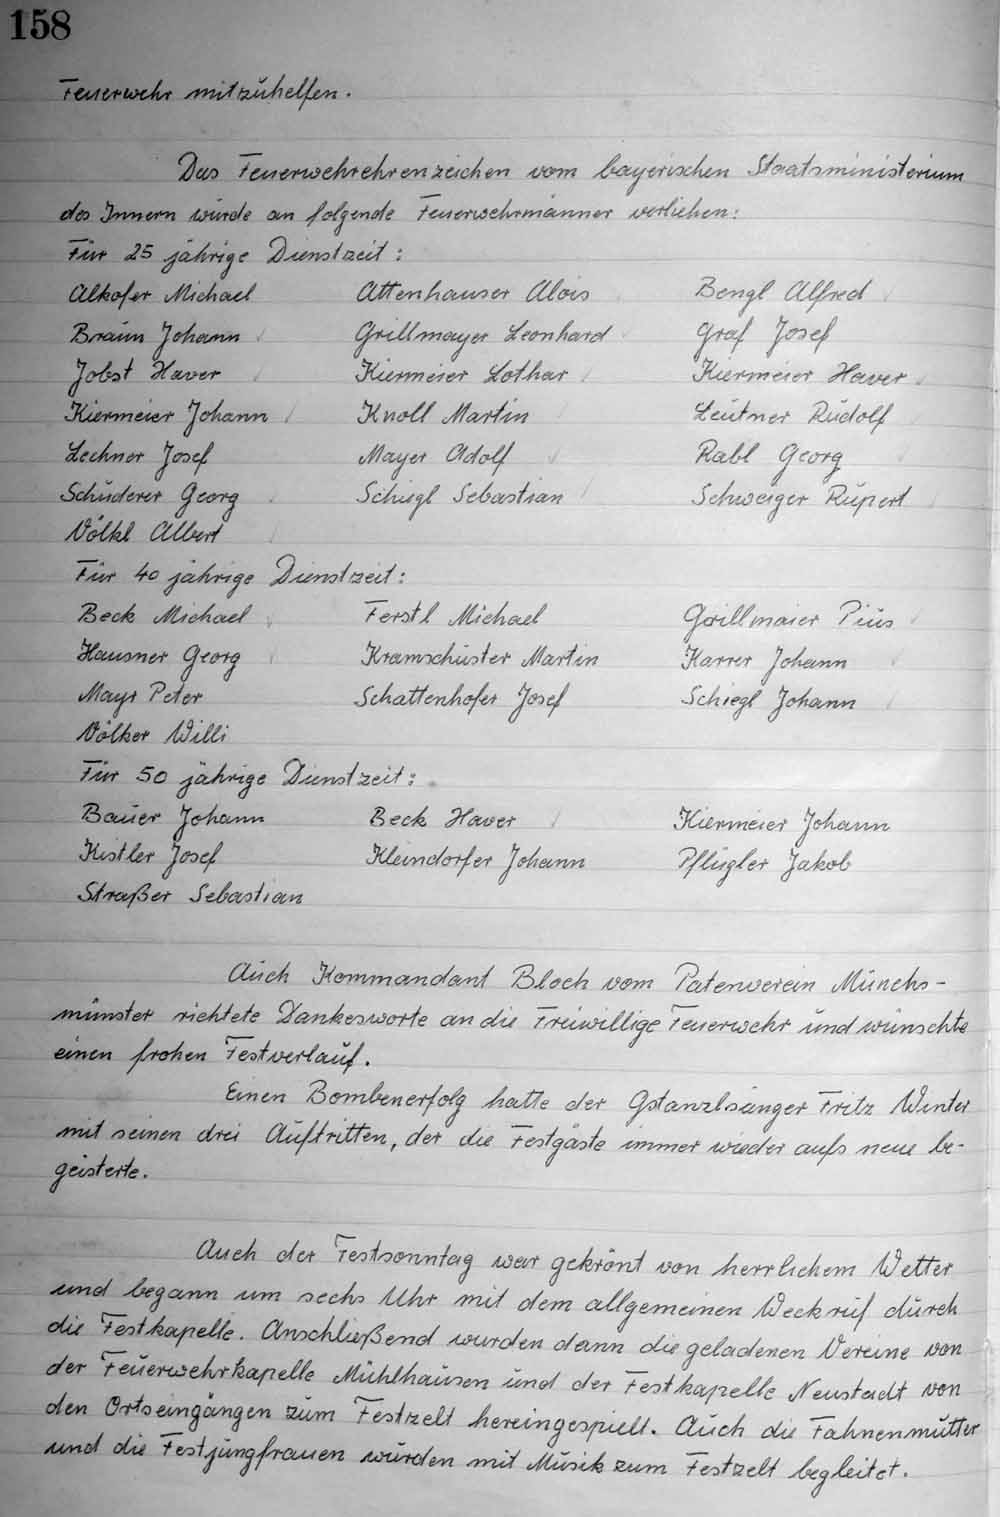 158
Feuerwehr mitzuhelfen.
Das Feuerwehrehrenzeichen vom bayerischen Staatsministerium
des Innern wurde an folgende Feuerwehrmänner verliehen:
Für 25 jährige Dienstzeit:
Alkofer Michael Attenhauser Alois Bengl Alfred
Braun Johann Grillmayer Leonhard Graf Josef
Jobst Xaver Kiermeier Lothar Kiermeier Xaver
Kiermeier Johann Knoll Martin Leutner Rudolf
Lechner Josef Mayer Adolf Rabl Georg
Schuderer Georg Schiegl Sebastian Schweiger Rupert
Völkl Albert
Für 40 jährige Dienstzeit:
Beck Michael Ferstl Michael Grillmaier Pius
Hausner Georg Kramschuster Martin Karrer Johann
Mayr Peter Schattenhofer Josef Schiegl Johann
Völker Willi
Für 50 jährige Dienstzeit:
Bauer Johann Beck Xaver Kiermeier Johann
Kistler Josef Kleindorfer Johann Pflügler Jakob
Straßer Sebastian
Auch Kommandant Bloch vom Patenverein Münchs-
münster richtete Dankesworte an die Freiwillige Feuerwehr und wünschte
einen frohen Festverlauf.
Einen Bombenerfolg hatte der Gstanzlsänger Fritz Winter
mit seinen drei Auftritten, der die Festgäste immer wieder aufs neue be-
geisterte.
Auch der Festsonntag war gekrönt von herrlichem Wetter
und begann um sechs Uhr mit dem allgemeinen Weckruf durch
die Festkapelle. Anschließend wurden dann die geladenen Vereine von
der Feuerwehrkapelle Mühlhausen und der Festkapelle Neustadt von
den Ortseingängen zum Festzelt hereingespielt. Auch die Fahnenmutter
und die Festjungfrauen wurden mit Musik zum Festzelt begleitet.